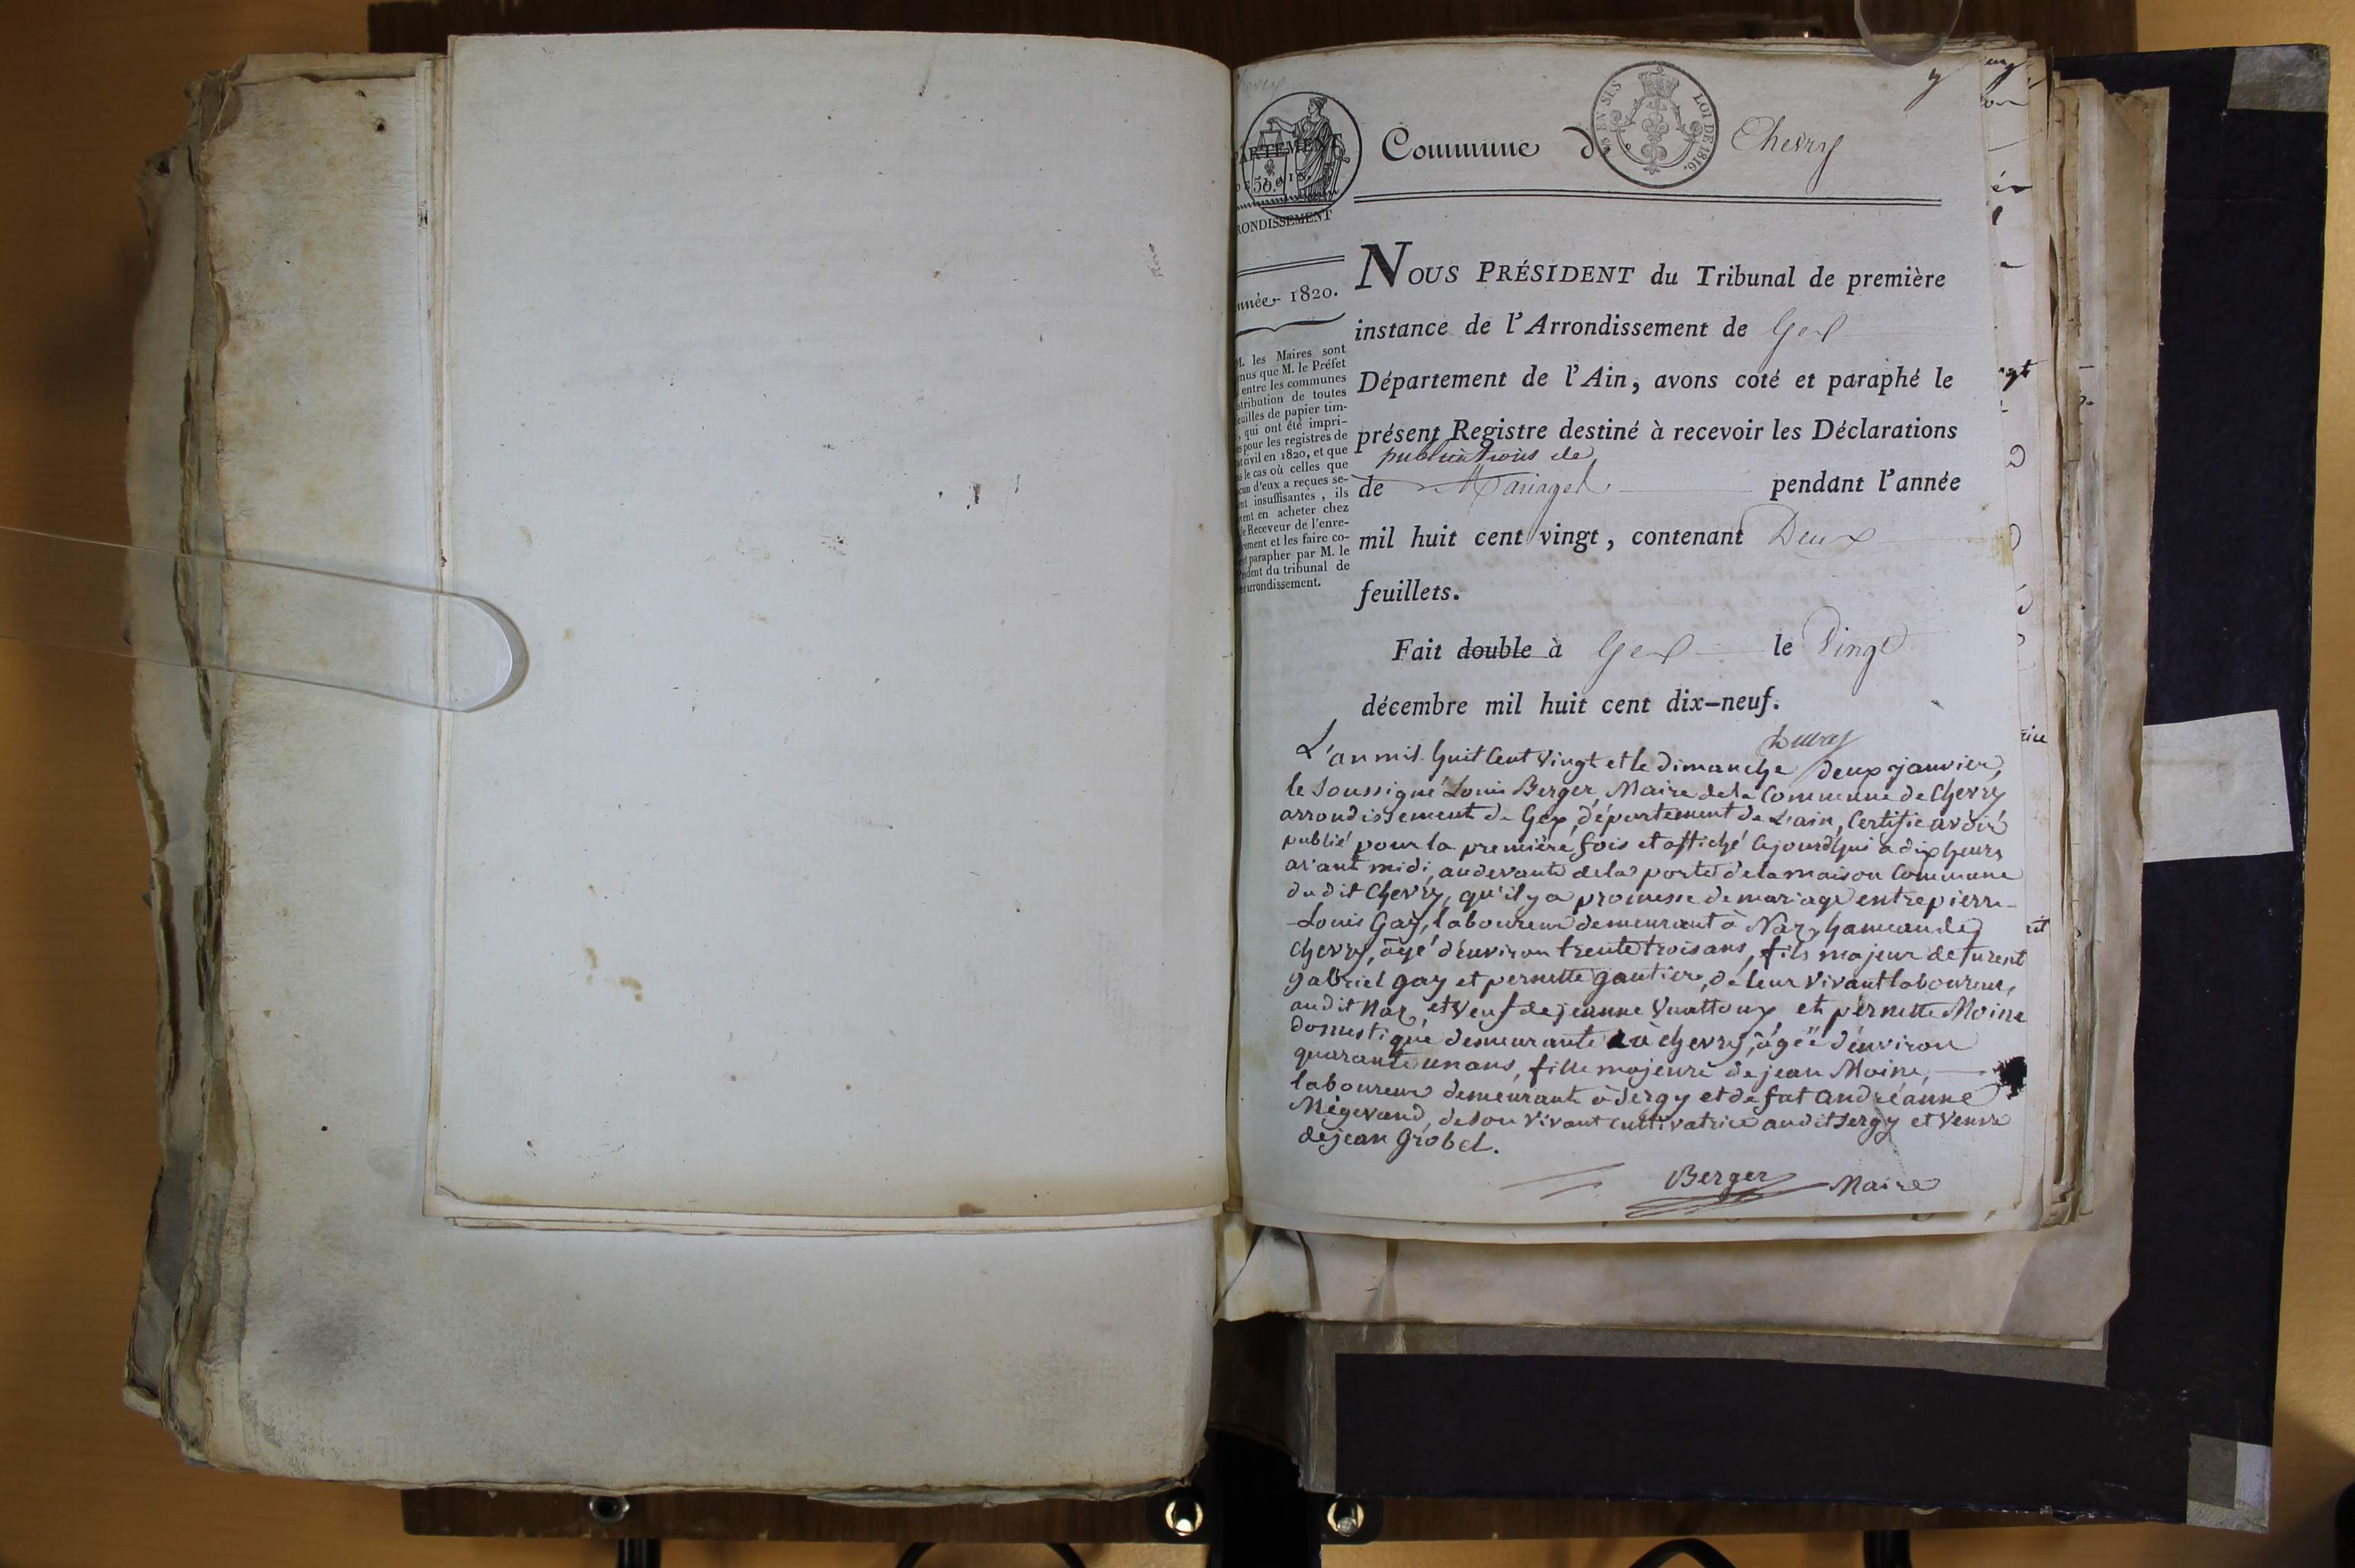 Commune de Chevry
EN SIS
LOI DE 1816.
PARTEMENT
50.
RONDISSEMENT
nnée 1820.
M. les Maires sont
nus que M. le Préfet
entre les communes
stribution de toutes
euilles de papier tim-
, qui ont été impri-
es pour les registres de
at civil en 1820, et que
s le cas où celles que
cun d'eux a reçues se-
nt insuffisantes, ils
vent en acheter chez
le Receveur de l'enre-
ement et les faire co-
et parapher par M. le
sident du tribunal de
arrondissement.
NOUS PRÉSIDENT du Tribunal de première
instance de l'Arrondissement de Gex
Département de l'Ain, avons coté et paraphé le
présent Registre destiné à recevoir les Déclarations
publications de
de Mariages pendant l'année
mil huit cent vingt, contenant Deux
feuillets.
Fait double à Gex le Vingt
décembre mil huit cent dix-neuf.
L'an mil huit Cent Vingt et le Dimanche deux janvier,
le Soussigné Louis Berger, Maire de la Commune de Chevry
arrondissement de Gex, département de L'ain, Certifie avoir
publié pour la première fois et affiché Cejourd'hui à dix heures
avant midi, audevant de la porte de la maison Commune
du dit Chevry, qu'il y a promesse de mariage entre pierre-
Louis Gay, laboureur demeurant à Naz, hameau de
Chevry, âgé d'environ trente trois ans, fils majeur de furent
gabriel gay et pernette gautier, de leur Vivant laboureur,
audit Naz, et Veuf de jeanne Vuattoux et pernette Moine
domestique demeurante à chevry, âgée d'environ
quarante un ans, fille majeure de jean Moine,
laboureur demeurant à Sergy et de fut andréanne
Mégevand, de son Vivant cultivatrice audit Sergy et Veuve
de jean Grobel.
Berger Maire